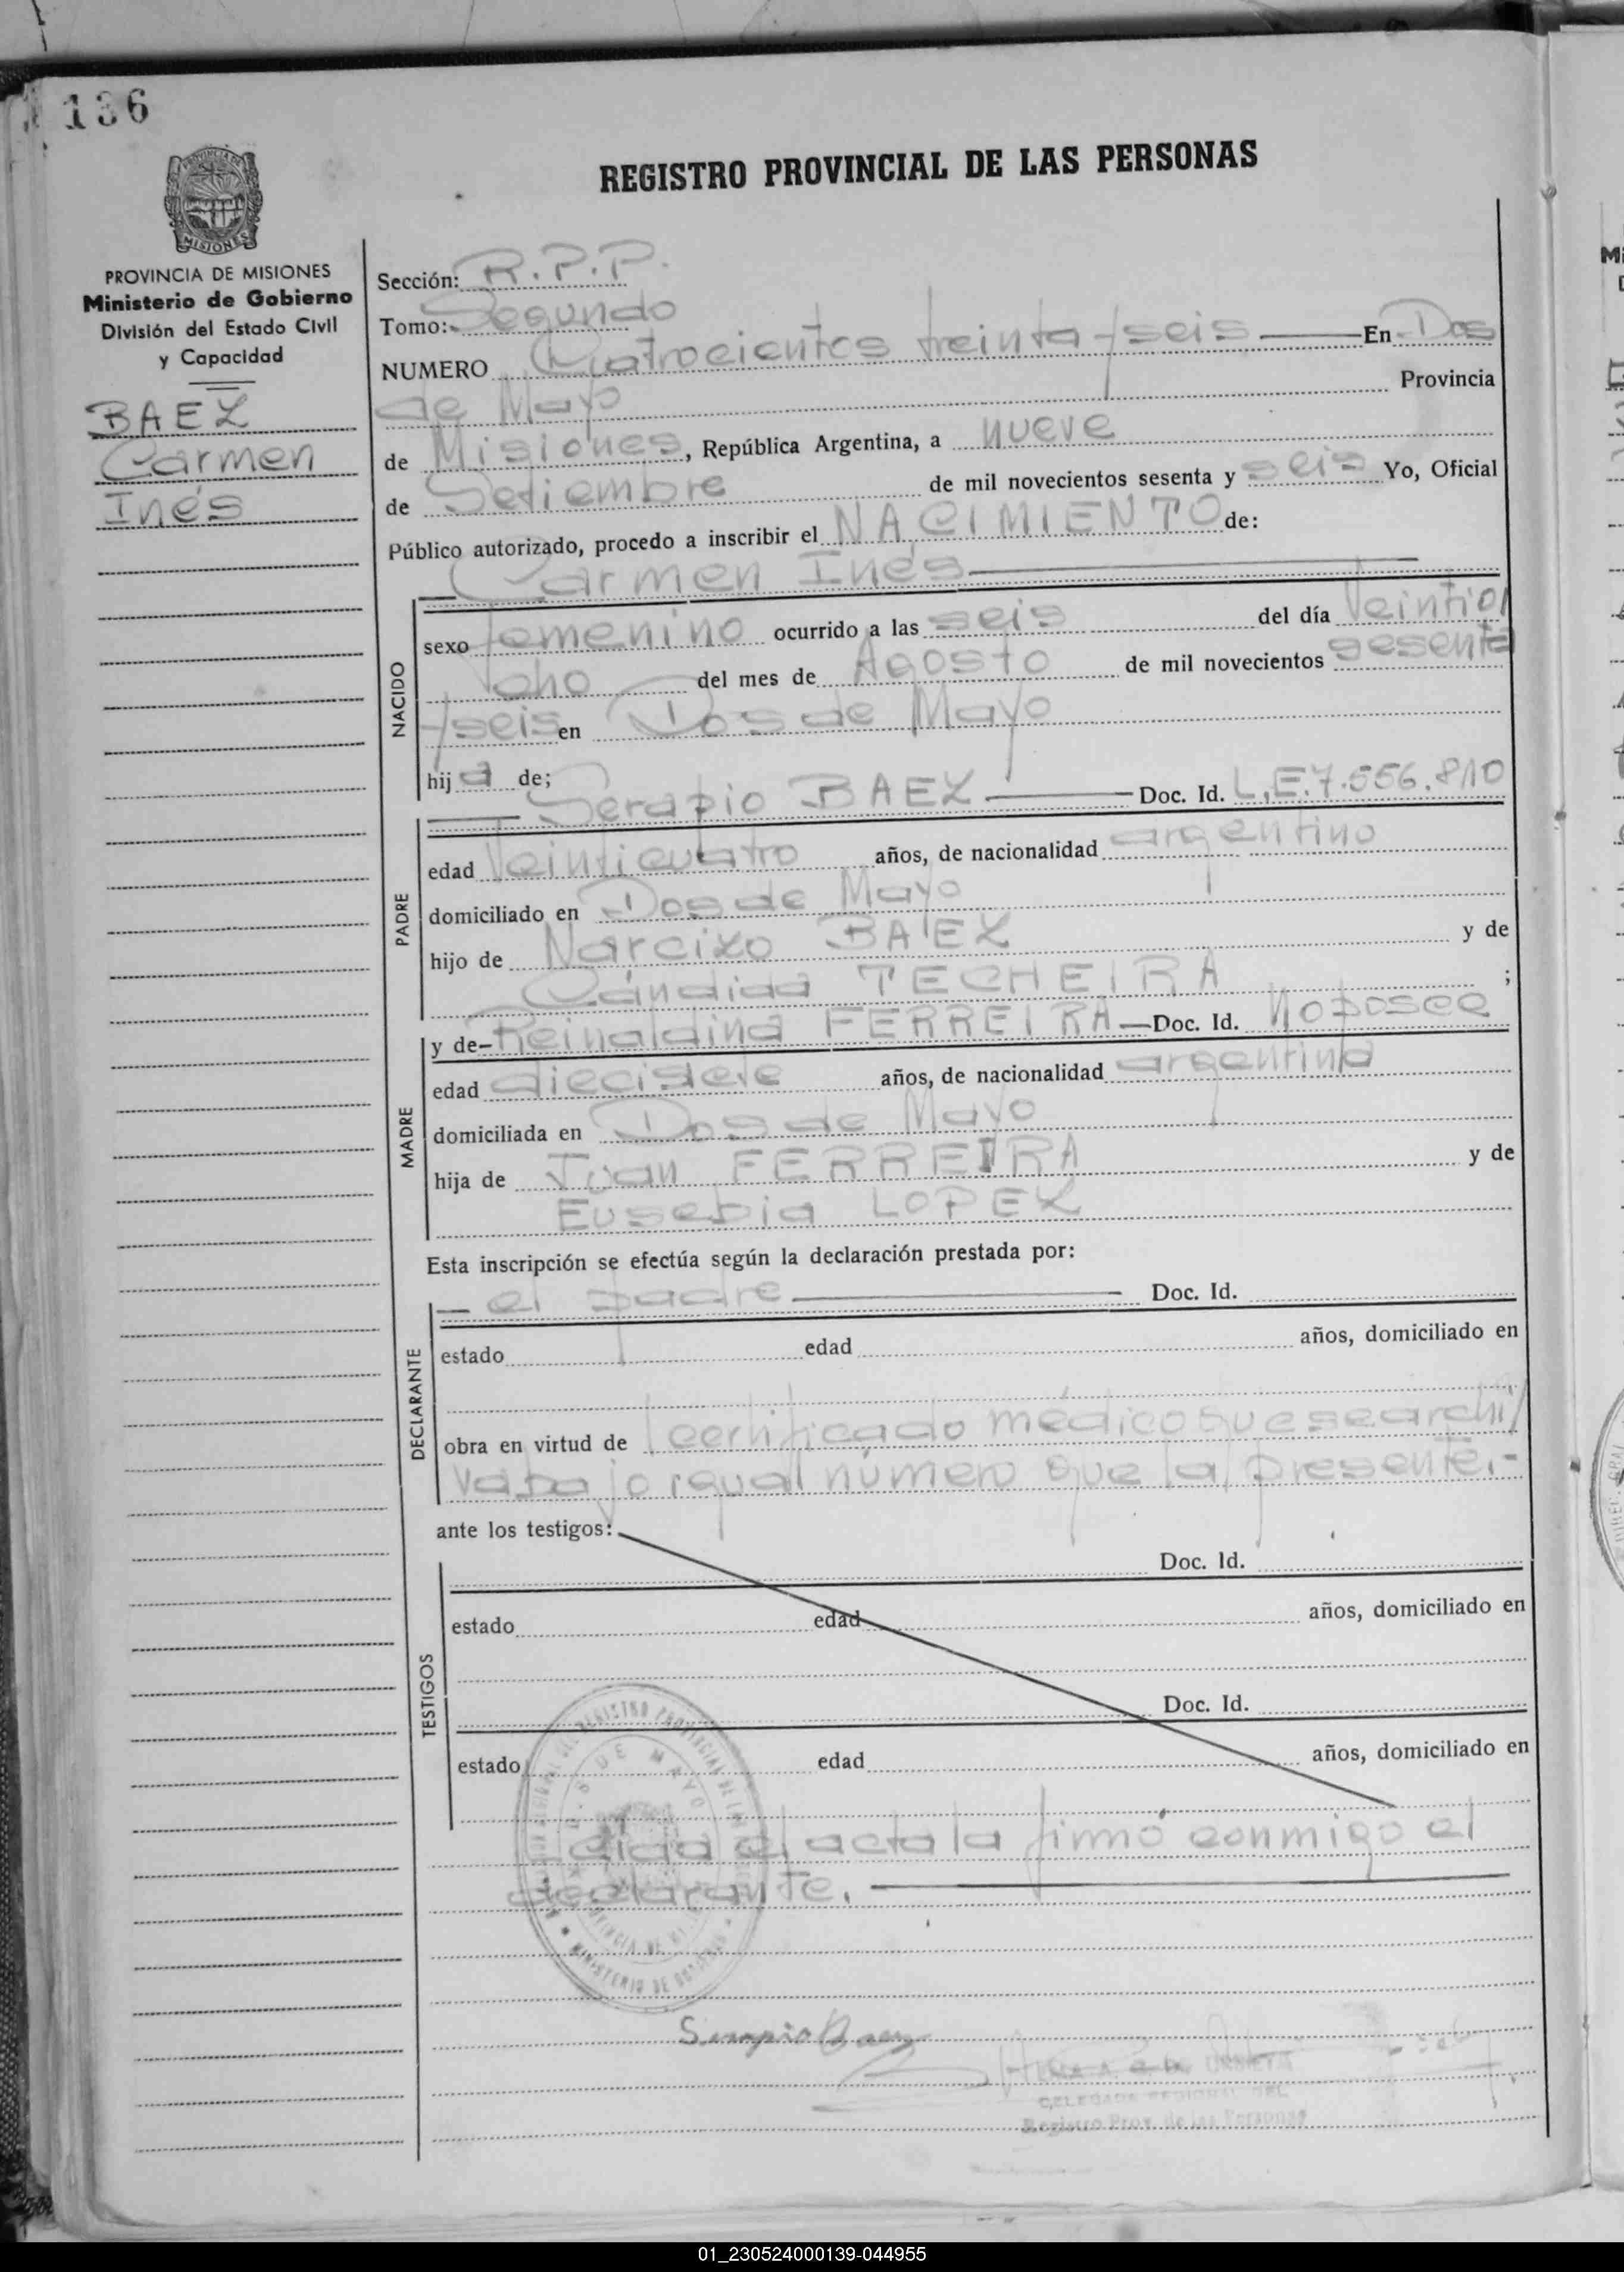 136
REGISTRO PROVINCIAL DE LAS PERSONAS
MISIONES
PROVINCIA DE MISIONES
Ministerio de Gobierno
División del Estado Civil
y Capacidad
BAEZ
Carmen
Inés
Sección: R.P.P.
Tomo: Segundo
NUMERO Cuatrocientos treinta y seis En Dos
de Mayo Provincia
de Misiones, República Argentina, a nueve
de Setiembre de mil novecientos sesenta y seis Yo, Oficial
Público autorizado, procedo a inscribir el NACIMIENTO de:
Carmen Inés
NACIDO
sexo femenino ocurrido a las seis del día Veintio
cho del mes de Agosto de mil novecientos sesenta
y seis en Dos de Mayo
hija de;
Serapio BAEZ Doc. Id. L.E. 7.556.810
PADRE
edad Veinticuatro años, de nacionalidad argentino
domiciliado en Dos de Mayo
hijo de Narcizo BAEZ y de
Cándida TECHEIRA ;
y de Reinaldina FERREIRA Doc. Id. No posee
MADRE
edad diecisiete años, de nacionalidad argentina
domiciliada en Dos de Mayo
hija de Juan FERREIRA y de
Eusebia LOPEZ
Esta inscripción se efectúa según la declaración prestada por:
el padre Doc. Id.
DECLARANTE
estado edad años, domiciliado en
obra en virtud de certificado médico que se archi
va bajo igual número que la presente.-
ante los testigos:
Doc. Id.
TESTIGOS
estado edad años, domiciliado en
Doc. Id.
estado edad años, domiciliado en
Leida el acta la firmó conmigo el
declarante.
MINISTERIO DE GOBIERNO
Serapio Baez
DELEGADA REGIONAL DEL
Registro Prov. de las Personas
01_230524000139-044955